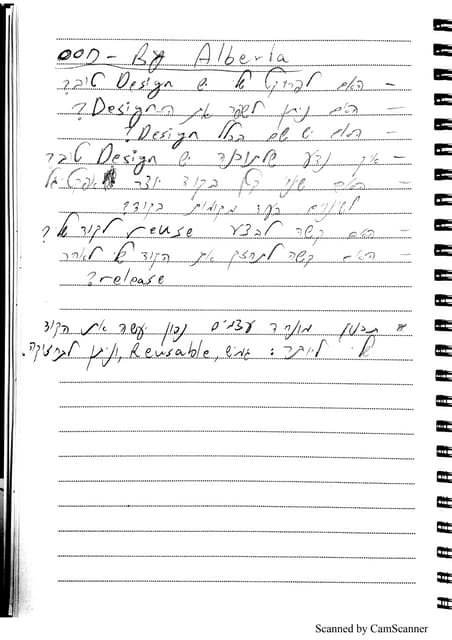 OOD - By Alberta
- האם לפרויקט שלי יש Design טוב?
- האם ניתן לשפר את הDesign?
- האם יש שם בכלל Design?
- איך נדע שלתוכנה יש Design טוב?
- האם שינוי קטן בקוד יוצר אפקט של
לשינויים בעוד מקומות בקוד?
- האם קשה לבצע reuse לקוד שלי?
- האם קשה לתחזק את הקוד שלי לאחר
release?
* תכנון מונחה עצמים נכון יעשה את הקוד
שלי ליותר: גמיש, Reusable, וניתן לתחזוקה.
Scanned by CamScanner